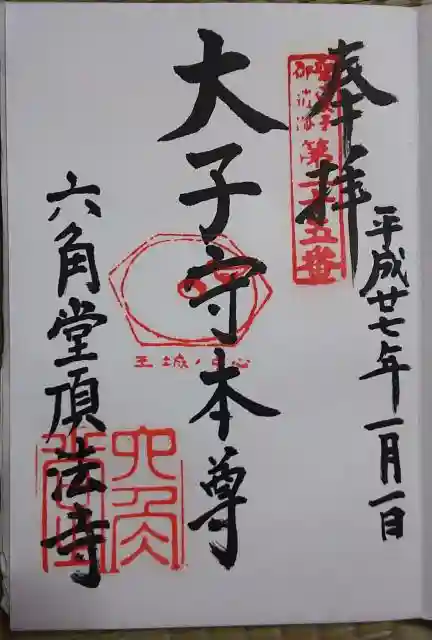 奉拝
平成廿七年一月一日
第三十五番
大子守本尊
王城ノ中心
六角堂頂法寺
六角